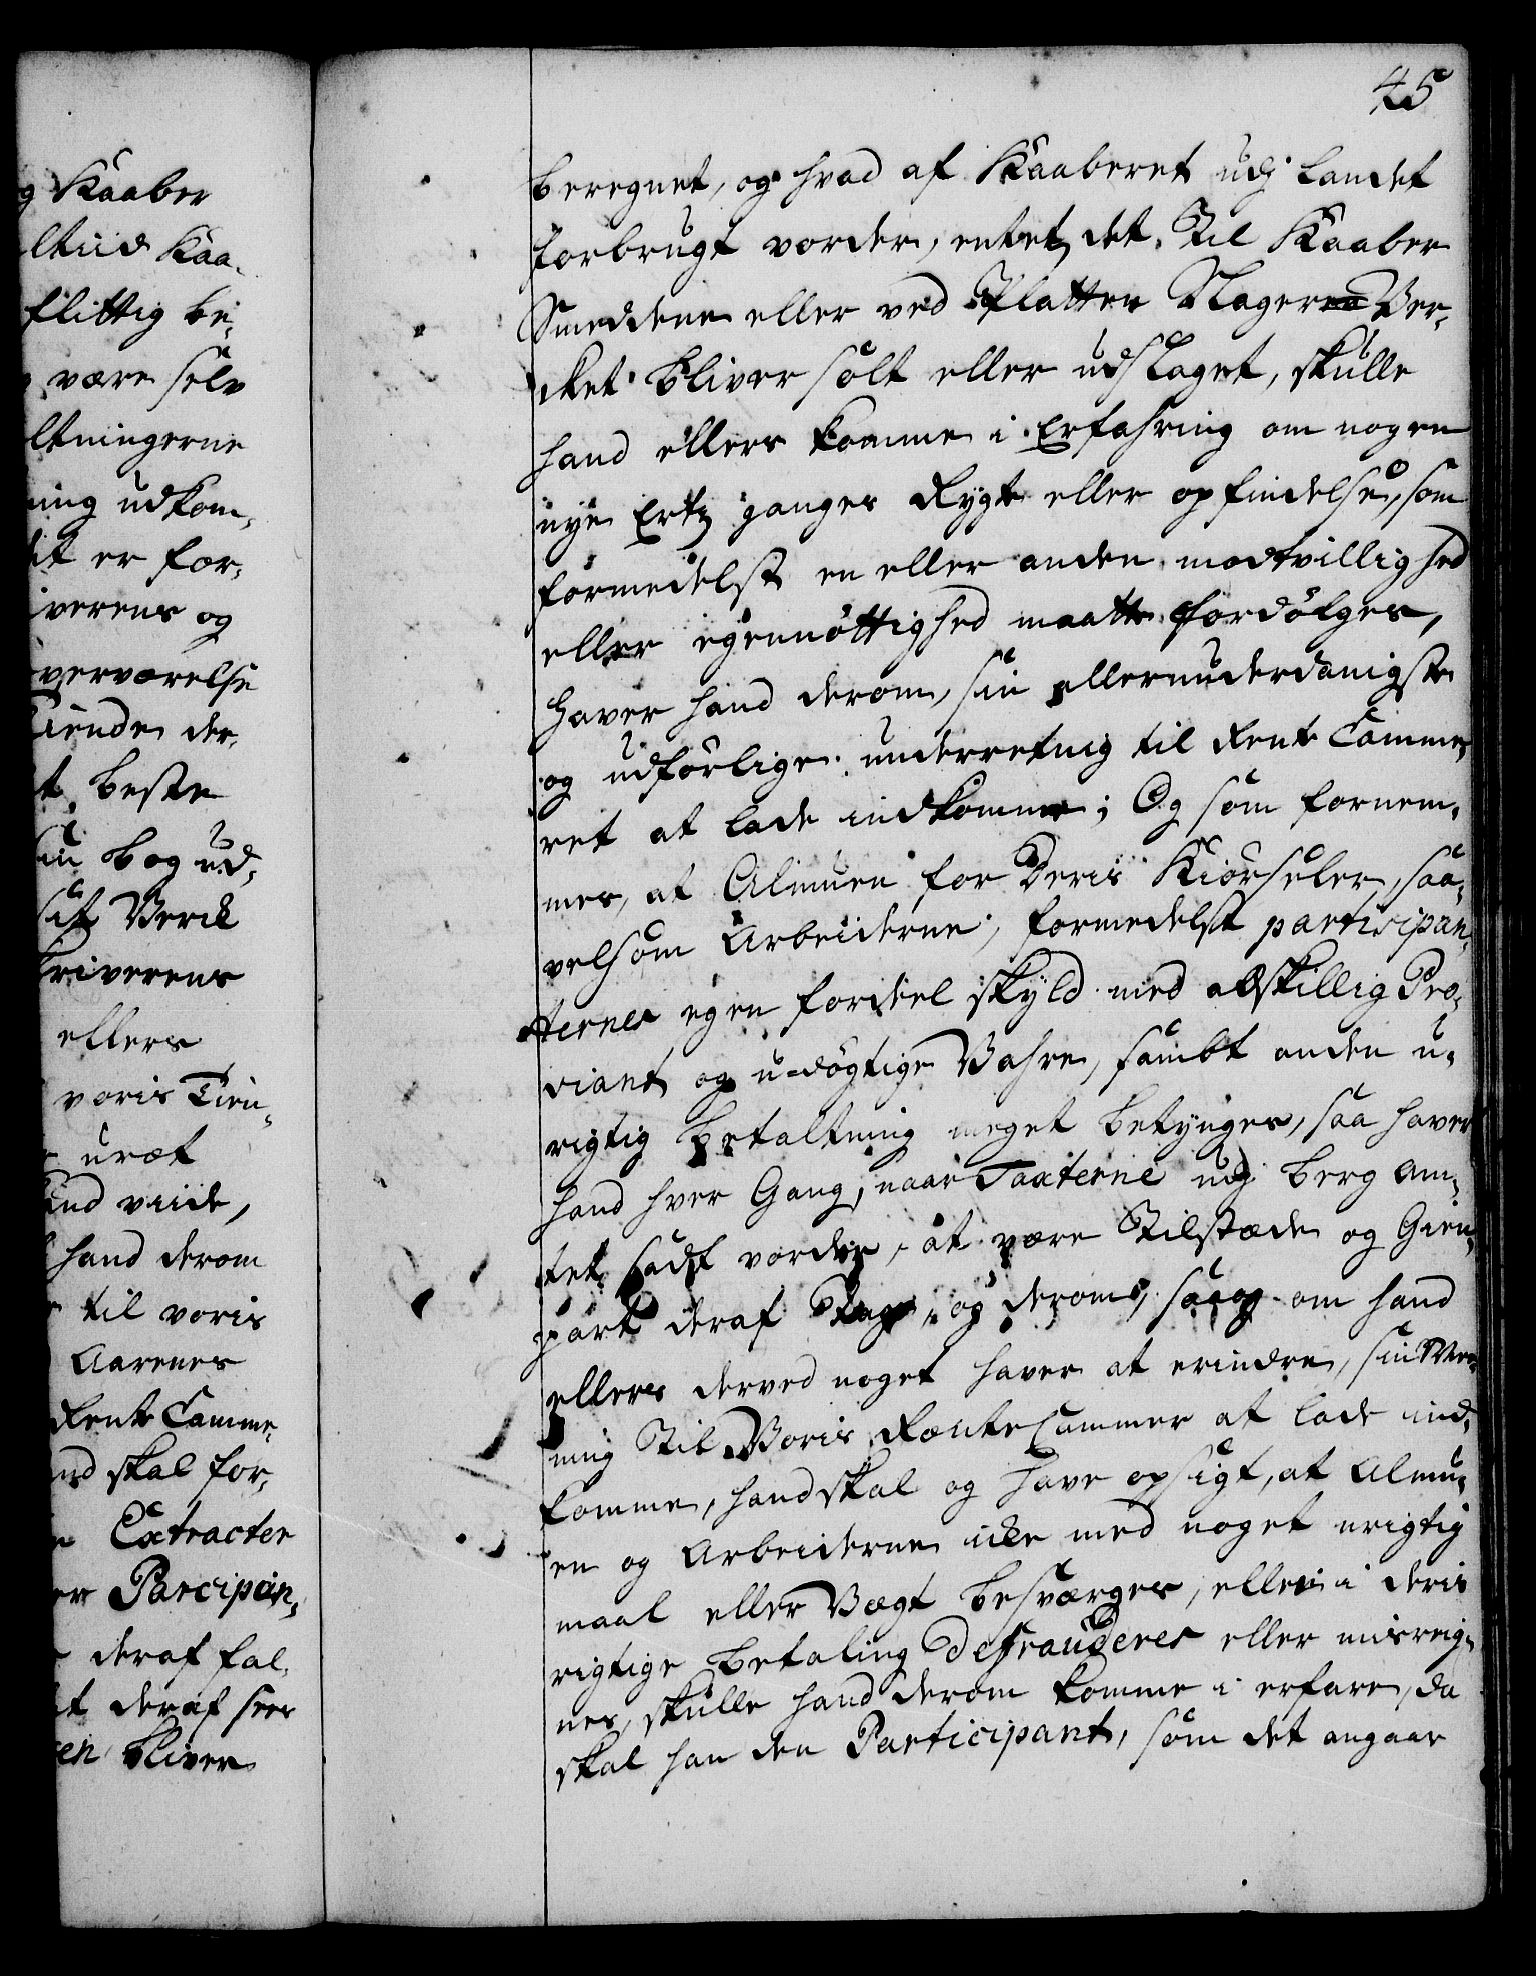 g Kaaber
ltiid Kaa-
flittig be-
være selv
ltningerne
ning udkom-
it er for-
iverens og
verværelse
Tiende der-
t beste
sin bog ud-
sit Verck
Skriverens
ellers
voris Tien-
uræt
hand viide,
hand derom
til voris
Aarenes
Rente Camme-
and skal for-
Extracter
er Parcipan-
deraf fal-
et deraf sees
en bliver
45
beregnet, og hvad af Kaaberet udj Landet
forbrugt vorder, enten det Til Kaaber
Smeddene eller ved Platter Slageren Ver-
cket bliver solt eller udslaget, skulle
hand ellers komme i Erfahring om nogen
nye Ertz ganges Rygte eller opfindelse, som
formedelst en eller anden modtvillighed
eller egennöttighed maatte fordölges,
haver hand derom, sin allerunderdanigste
og udförlige underretnig til Rente Camme-
ret at lade indkomme; Og som fornem-
mes, at Almuen for Deris Kiörseler, saa-
velsom Arbeiderne, formedelst participan-
ternes egen fordeel skyld med adskillig Pro-
viant og u-dögtige Vahre, sambt anden u-
rigtig betaltning meget betynges, saa haver
hand hver Gang, naar Taxterne udj berg Am-
tet sadt vorder, at være Tilstæde og Gien-
part deraf Tage, og derom, saa og om hand
ellers derved noget haver at erindre, sin Mee-
ning Til Voris RænteCammer at lade ind-
komme, hand skal og have opsigt, at Almu-
en og Arbeiderne icke med noget urigtig
maal eller Vægt besværges, eller i deris
rigtige betaling Defrauderes eller misreig-
nes, skulle hand derom komme i erfare, da
skal han den Participant, som det angaar